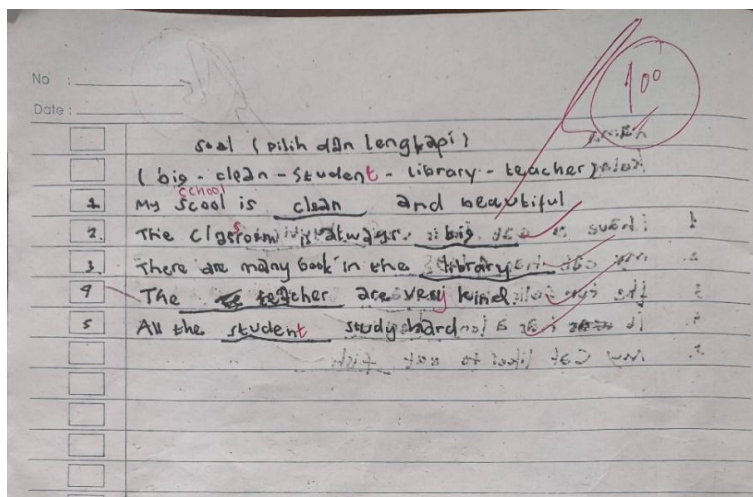 No :
Date :
100
Soal (pilih dan Lengkapi)
(big - clean - student - Library - teacher)
school
1. My scool is clean and beautiful
2. The classroom is always big
3. There are many book in the library
4 The teacher are very kind
5 All the student study hard
My cat likes to eat fish